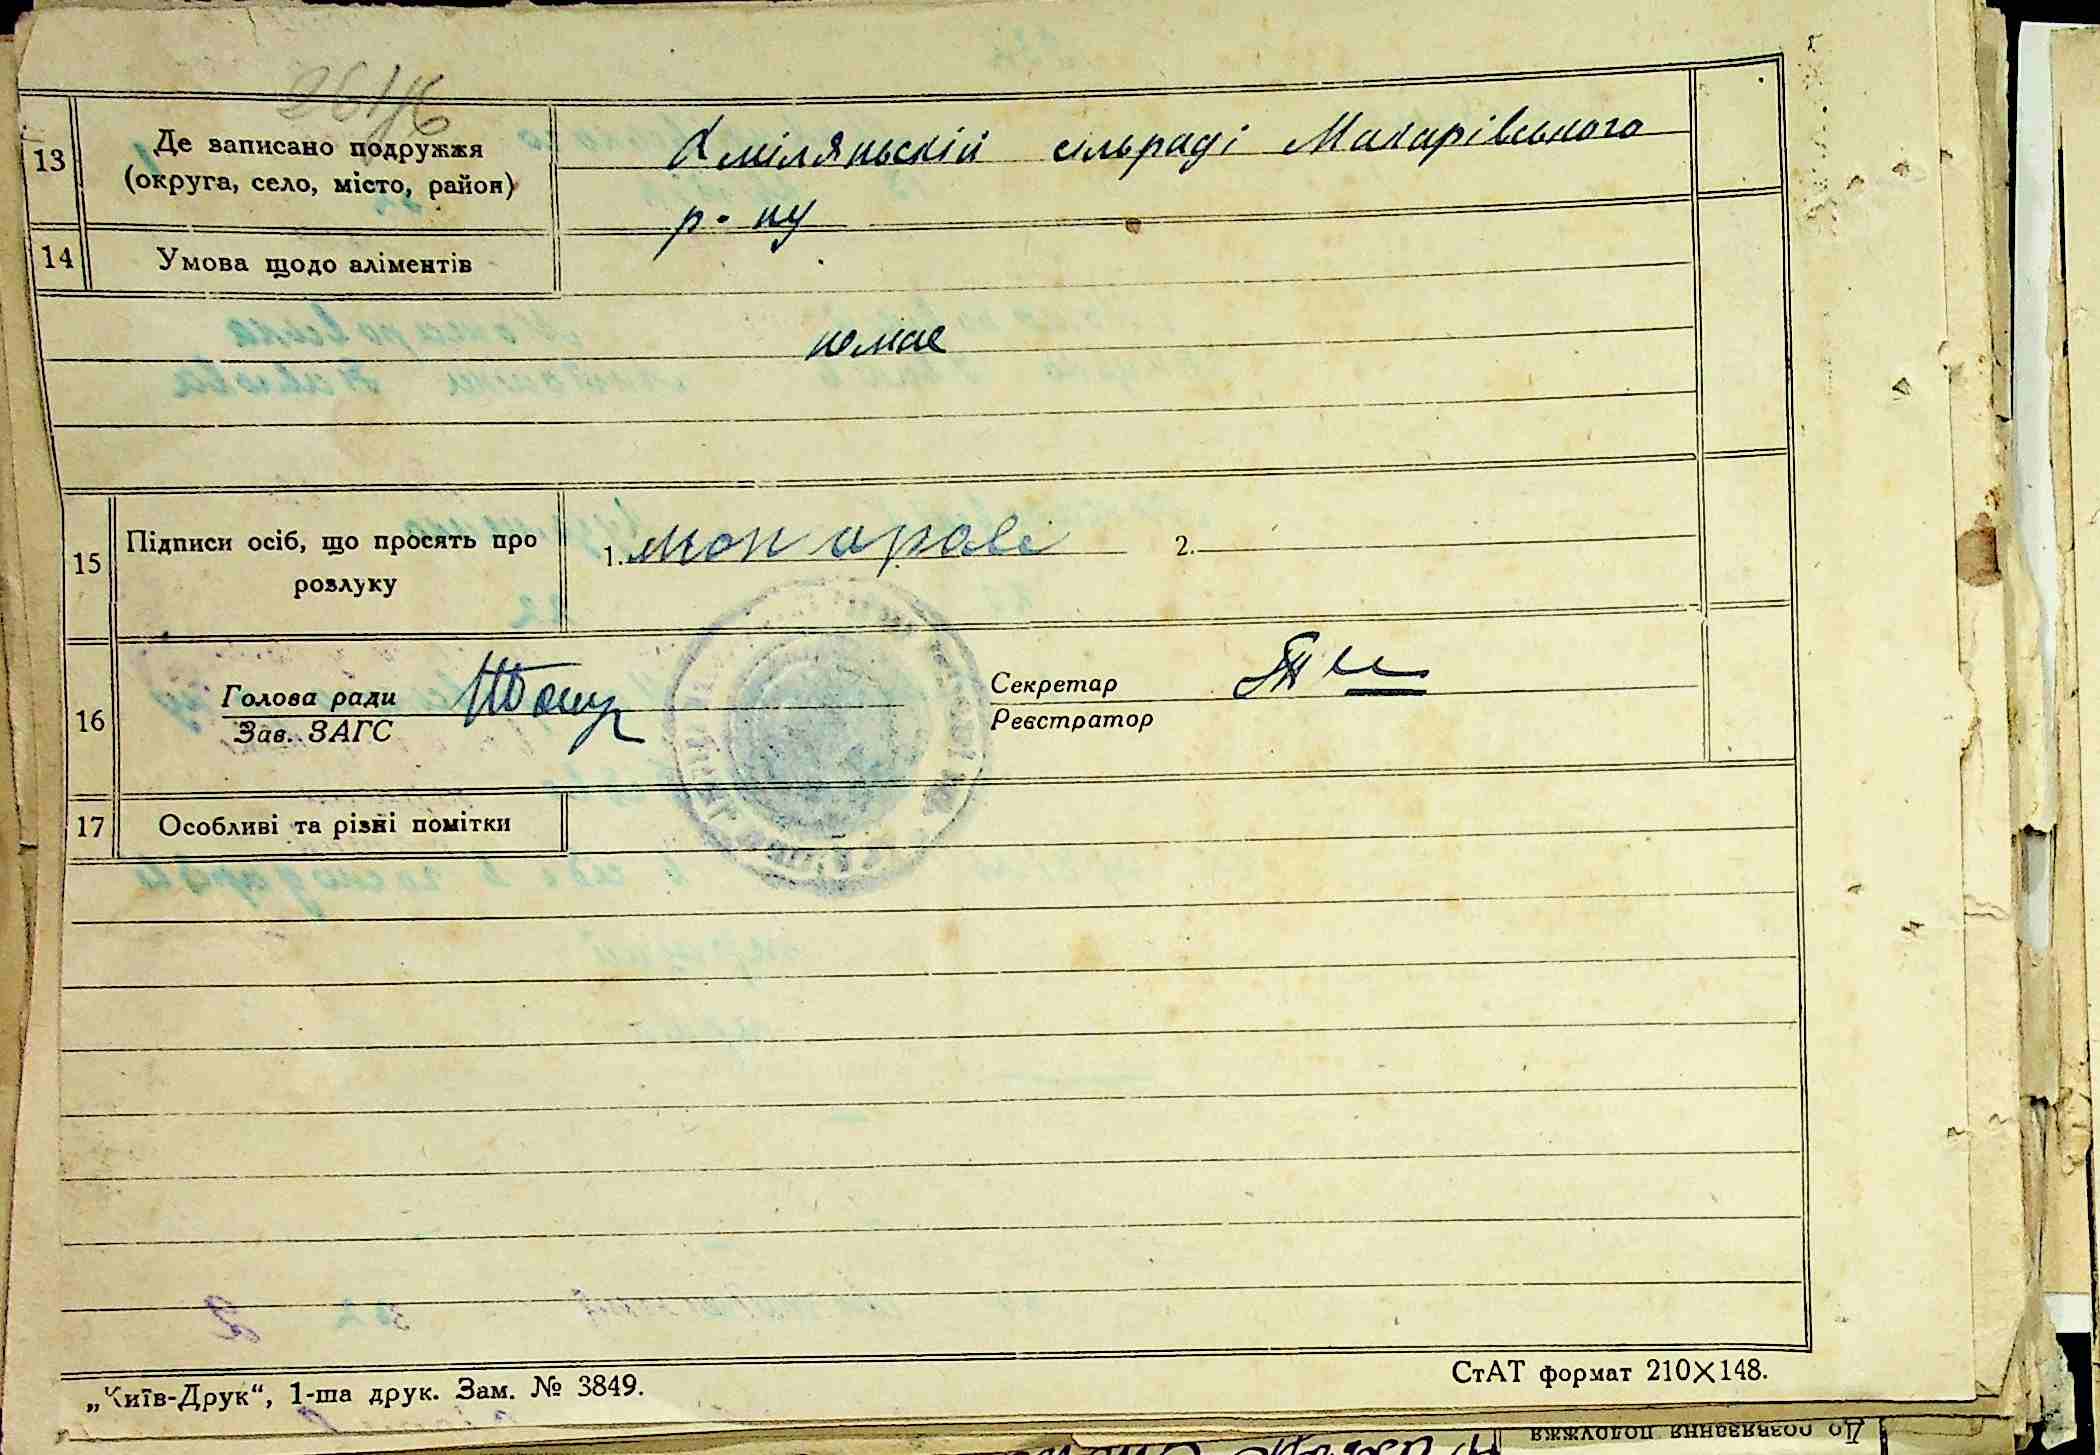 13
Де записано подружжя
(округа, село, місто, район)
Хміляньскій сільраді Макарівського
р-ну
14
Умова щодо аліментів
немає
15
Підписи осіб, що просять про
розлуку
1.
2.
16
Голова ради
Зав. ЗАГС
Секретар
Реєстратор
17
Особливі та різні помітки
„Київ-Друк“, 1-ша друк. Зам. № 3849.
СтАТ формат 210×148.